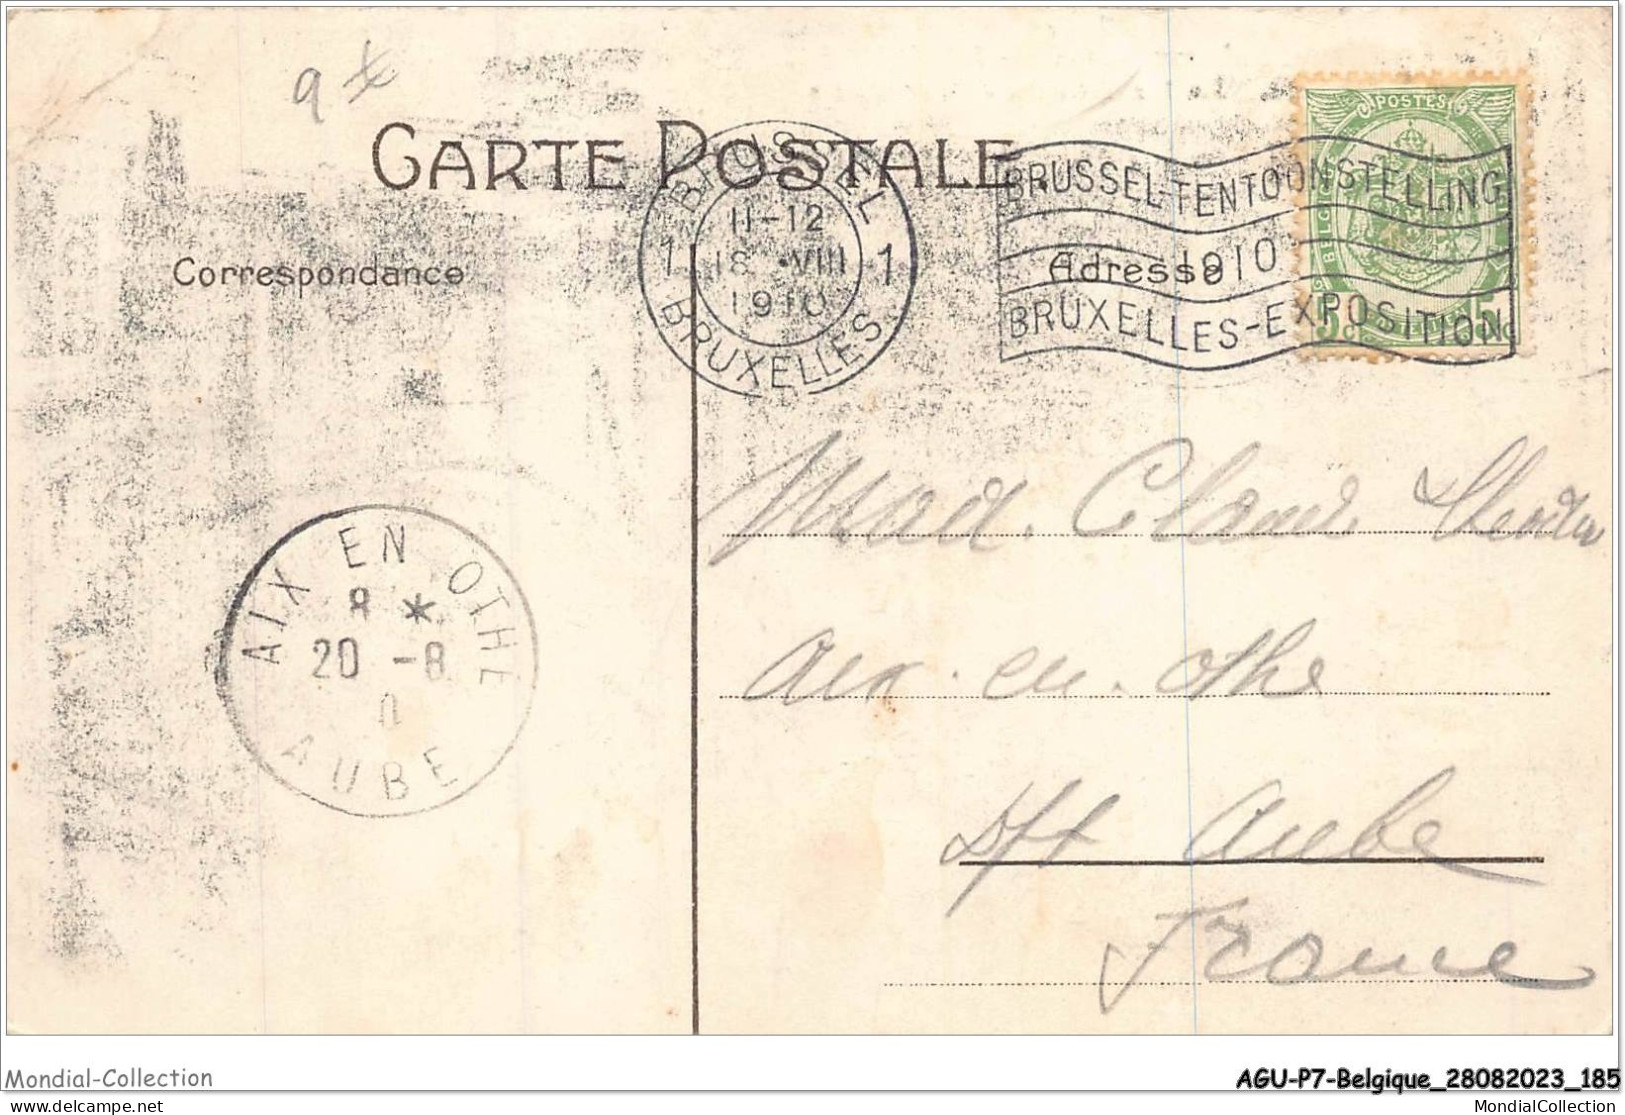 9 fx
CARTE POSTALE.
BRUSSEL
11-12
1 18 •VIII 1
1910
BRUXELLES
BRUSSEL-TENTOONSTELLING
1910
BRUXELLES-EXPOSITION
POSTES
BELGIË
5c 5c
Correspondance
Adresse
Mad. Claud.
Aix. en. Othe
Dpt Aube
France
AIX EN OTHE
8 *
20 -8
AUBE
Mondial-Collection
AGU-P7-Belgique_28082023_185
www.delcampe.net
MondialCollection